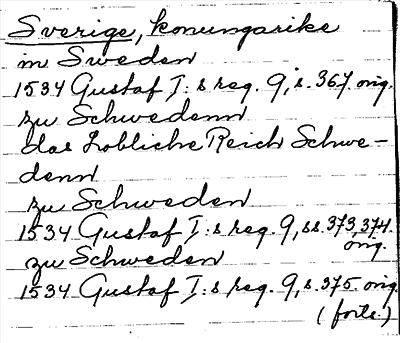 Sverige, konungarike
in Sweden
1534 Gustaf I:s reg. 9, s. 367. orig.
zu Schwedenn
das Lobliche Reich Schwe-
denn
zu Schweden
1534 Gustaf I:s reg. 9, ss. 373, 374.
orig.
zu Schweden
1534 Gustaf I:s reg. 9, s. 375. orig.
(forts.)